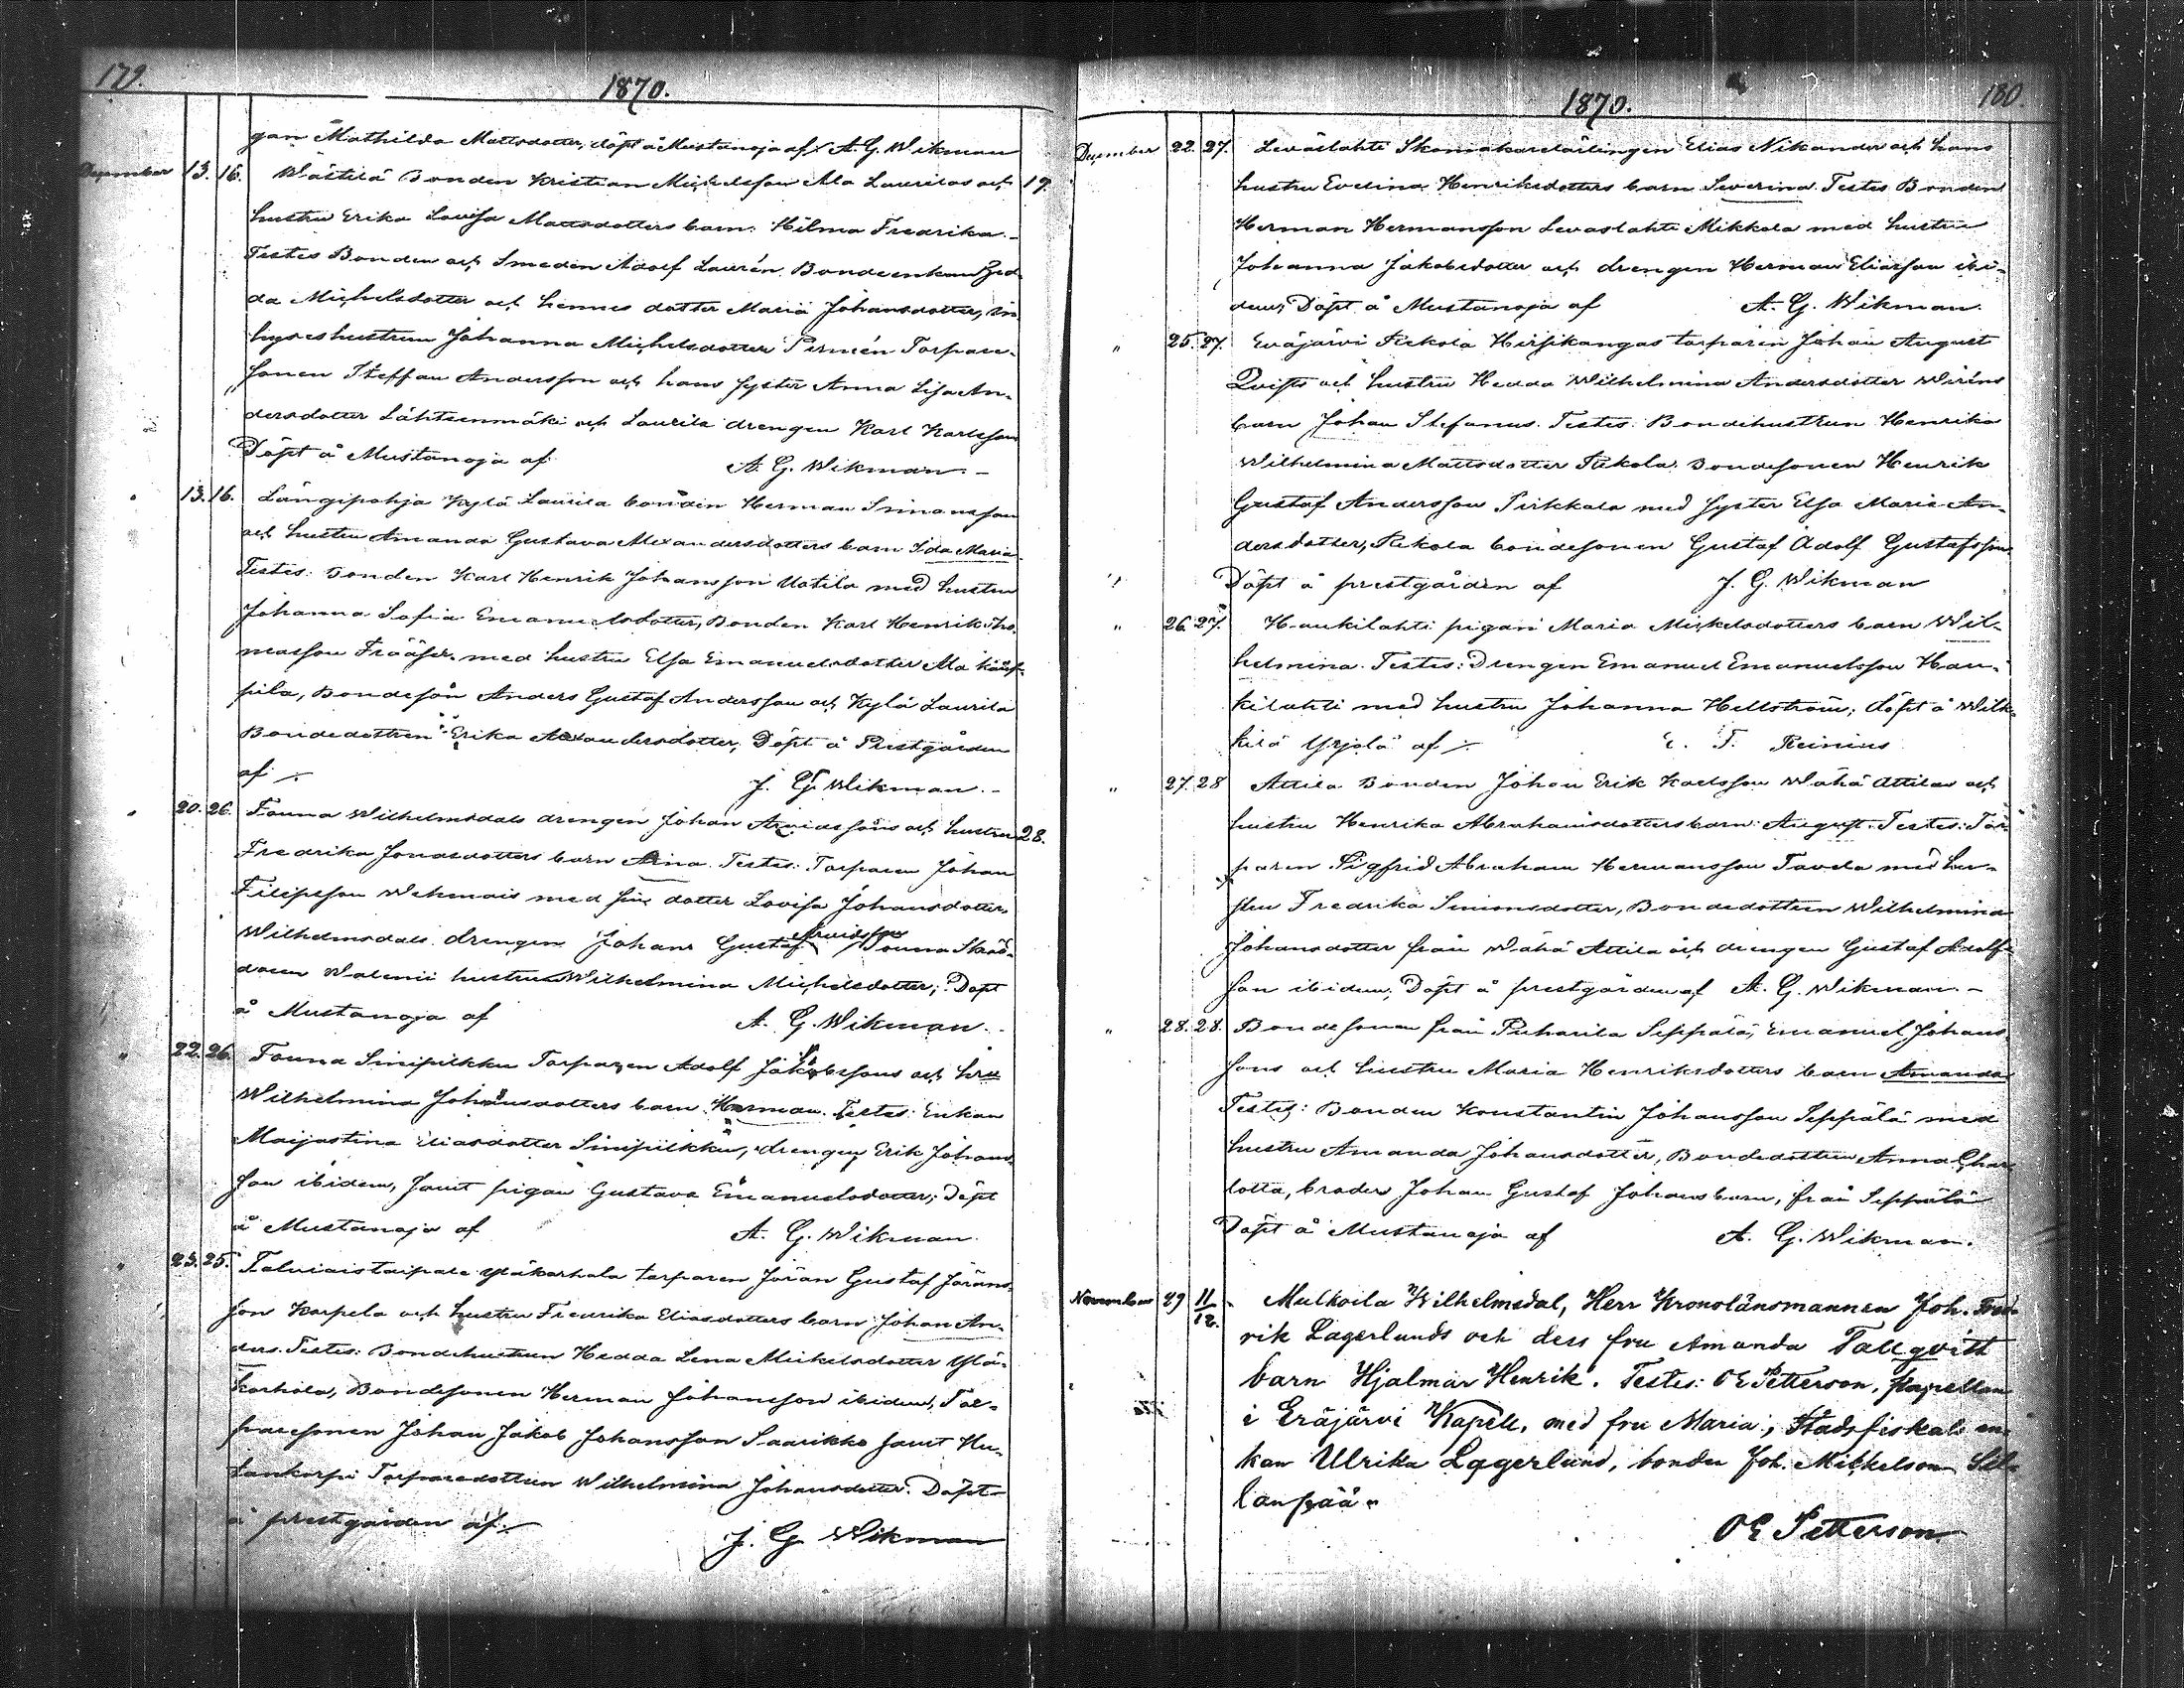 179.
1870.
gan Mathilda Mattsdotter, döpt å Mustanoja af A. G. Wikman
December 13. 16. Wästilä Bonden Kristian Michelsson Ala Laurilas och 19.
hustru Erika Lovisa Mattsdotters barn Hilma Fredrika.
Testes Bonden och Smeden Adolf Laurén, Bondeenkan Hed
da Michelsdotter och hennes dotter Maria Johansdotter, in
hyseshustrun Johanna Michelsdotter Pirmén Torpare
sonen Steffan Andersson och hans syster Anna Lisa An-
dersdotter Lähteenmäki och Laurila drengen Karl Karlsson
Döpt å Mustanoja af A. G. Wikman.
" 13. 16. Längipohja Kylä Laurila bonden Herman Simonsson
och hustru Amanda Gustava Alexandersdotters barn Ida Maria
Testes: Bonden Karl Henrik Johansson Uotila med hustru
Johanna Sofia Emanuelsdotter, Bonden Karl Henrik Tho
masson med hustru Elsa Emanuelsdotter Ala
pila, Bondeson Anders Gustaf Andersson och Kylä Laurila
Bondedottren Erika Alexandersdotter, Döpt å Prestgården
af J. G. Wikman.
" 20. 26. Touna Wilhelmsdals drengen Johan Arvidssons och hustru 28.
Fredrika Jonasdotters barn Arina. Testes: Torparen Johan
Filipsson Wehmais med sin dotter Lovisa Johansdotter,
Wilhelmsdals drengen Johan Gustaf Arvidsson, Touna Skräd-
daren Walenii hustru Wilhelmina Michelsdotter; Döpt
å Mustanoja af A. G. Wikman.
" 22. 26. Touna Sinipilkku Torparen Adolf Jakobssons och hru
Wilhelmina Johansdotters barn Herman. Testes: Enkan
Maijastina Eliasdotter Sinipilkku, drengen Erik Johans
son ibidem, samt pigan Gustava Emanuelsdotter; Döpt
å Mustanoja af A. G. Wikman.
" 23. 25. Talviaistaipale Yläkarhala torparen Jöran Gustaf Jörans
son Karpela och hustru Fredrika Eliasdotters barn Johan An-
ders. Testes: Bondehustrun Hedda Lena Mickelsdotter Ylä-
karhola, Bondesonen Herman Johansson ibidem, Tor-
paresonen Johan Jakob Johansson Saarikko samt
Torparedottren Wilhelmina Johansdotter. Döpt
å prestgården af J. G. Wikman
180.
1870.
December 22. 27. Leväslahti Skomakarelärlingen Elias Nikander och hans
hustru Evelina Henriksdotters barn Severina. Testes Bonden
Herman Hermansson Levaslahti Mikkola med hustru
Johanna Jakobsdotter och drengen Herman Eliasson ibi-
dem; Döpt å Mustanoja af A. G. Wikman.
" 25. 27. Eräjärvi Rekola Hirsikangas torparen Johan August
Qvists och hustru Hedda Wilhelmina Andersdotter Wiréns
barn Johan Stefanus. Testes: Bondehustrun Henrika
Wilhelmina Mattsdotter Rekola, Bondesonen Henrik
Gustaf Andersson Pirkkala med syster Elsa Maria An-
dersdotter, Rekola bondesonen Gustaf Adolf Gustafsson
Döpt å prestgården af J. G. Wikman
" 26. 27. Haukilahti pigan Maria Mickelsdotters barn Wil-
helmina. Testes: Drengen Emanuel Emanuelsson Hau-
kilahti med hustru Johanna Hellström; döpt å Wih-
kilä Yrjölä af E. F. Reinius
" 27. 28 Attila Bonden Johan Erik Karlsson Wähä Attilas och
hustru Henrika Abrahamsdotters barn: August. Testes: Tor-
paren Sigfrid Abraham Hermansson Tavela med hu-
stru Fredrika Simonsdotter, Bondedottren Wilhelmina
Johansdotter från Wähä Attila och drengen Gustaf Adolfs
son ibidem; Döpt å prestgården af A. G. Wikman.
" 28. 28. Bondesonen från Puharila Seppälä, Emanuel Johans
sons och hustru Maria Henriksdotters barn Amanda
Testes: Bonden Konstantin Johansson Seppälä med
hustru Amanda Johansdotter, Bondedottren Anna Char
lotta, broder Johan Gustaf Johans barn, från Seppälä
Döpt å Mustanoja af A. G. Wikman.
November 29 11/12. Mulkoila Wilhelmsdal, Herr Kronolänsmannen Joh. Fred-
rik Lagerlunds och dess fru Amanda Tallqvist
barn Hjalmar Henrik. Testes: OE Petterson, kapellan
i Eräjärvi Kapell, med fru Maria; Stadsfiskals en-
kan Ulrika Lagerlund, bonden Joh. Mickelson Sil-
lanpää.
OE Petterson